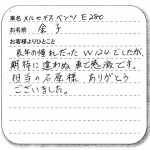 車名 メルセデスベンツ E280
お名前 金子
お客様よりひとこと
長年の憧れだった W124でしたが、
期待に違わぬ 車で感激です。
担当の石原様、ありがとう
ございました。